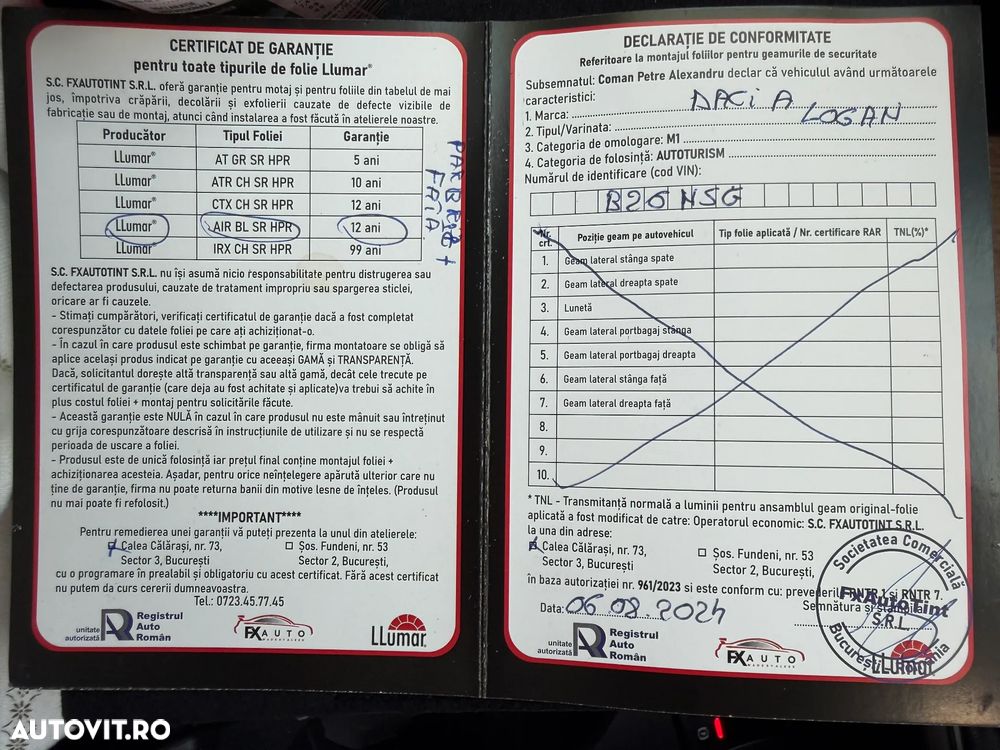 CERTIFICAT DE GARANȚIE
pentru toate tipurile de folie Llumar®
S.C. FXAUTOTINT S.R.L. oferă garanție pentru motaj și pentru foliile din tabelul de mai
jos, împotriva crăpării, decolării și exfolierii cauzate de defecte vizibile de
fabricație sau de montaj, atunci când instalarea a fost făcută în atelierele noastre.
Producător Tipul Foliei Garanție
LLumar® AT GR SR HPR 5 ani
LLumar® ATR CH SR HPR 10 ani
LLumar® CTX CH SR HPR 12 ani
LLumar® AIR BL SR HPR 12 ani
LLumar® IRX CH SR HPR 99 ani
PARBRIZ +
FATA
S.C. FXAUTOTINT S.R.L. nu își asumă nicio responsabilitate pentru distrugerea sau
defectarea produsului, cauzate de tratament impropriu sau spargerea sticlei,
oricare ar fi cauzele.
- Stimați cumpărători, verificați certificatul de garanție dacă a fost completat
corespunzător cu datele foliei pe care ați achiziționat-o.
- În cazul în care produsul este schimbat pe garanție, firma montatoare se obligă să
aplice același produs indicat pe garanție cu aceeași GAMĂ și TRANSPARENȚĂ.
Dacă, solicitantul dorește altă transparență sau altă gamă, decât cele trecute pe
certificatul de garanție (care deja au fost achitate și aplicate)va trebui să achite în
plus costul foliei + montaj pentru solicitările făcute.
- Această garanție este NULĂ în cazul în care produsul nu este mânuit sau întreținut
cu grija corespunzătoare descrisă în instrucțiunile de utilizare și nu se respectă
perioada de uscare a foliei.
- Produsul este de unică folosință iar prețul final conține montajul foliei +
achiziționarea acesteia. Așadar, pentru orice neînțelegere apărută ulterior care nu
ține de garanție, firma nu poate returna banii din motive lesne de înțeles. (Produsul
nu mai poate fi refolosit.)
****IMPORTANT****
Pentru remedierea unei garanții vă puteți prezenta la unul din atelierele:
Calea Călărași, nr. 73, Șos. Fundeni, nr. 53
Sector 3, București Sector 2, București,
cu o programare în prealabil și obligatoriu cu acest certificat. Fără acest certificat
nu putem da curs cererii dumneavoastra.
Tel.: 0723.45.77.45
unitate
autorizată
Registrul
Auto
Român
FXAUTO
LLumar®
DECLARAȚIE DE CONFORMITATE
Referitoare la montajul foliilor pentru geamurile de securitate
Subsemnatul: Coman Petre Alexandru declar că vehiculul având următoarele
caracteristici:
1. Marca: DACIA
2. Tipul/Varinata: LOGAN
3. Categoria de omologare: M1
4. Categoria de folosință: AUTOTURISM
Numărul de identificare (cod VIN):
B26NSG
Nr. crt. Poziție geam pe autovehicul Tip folie aplicată / Nr. certificare RAR TNL(%)*
1. Geam lateral stânga spate
2. Geam lateral dreapta spate
3. Lunetă
4. Geam lateral portbagaj stânga
5. Geam lateral portbagaj dreapta
6. Geam lateral stânga față
7. Geam lateral dreapta față
8.
9.
10.
* TNL - Transmitanță normală a luminii pentru ansamblul geam original-folie
aplicată a fost modificat de catre: Operatorul economic: S.C. FXAUTOTINT S.R.L.
la una din adrese:
Calea Călărași, nr. 73, Șos. Fundeni, nr. 53
Sector 3, București Sector 2, București,
în baza autorizației nr. 961/2023 si este conform cu: prevederile RNTR 1 și RNTR 7.
Data: 06.08.2024 Semnătura și ștampila
Societatea Comercială
FxAutoTint
S.R.L.
București România
unitate
autorizată
Registrul
Auto
Român
FXAUTO
LLumar
AUTOVIT.RO